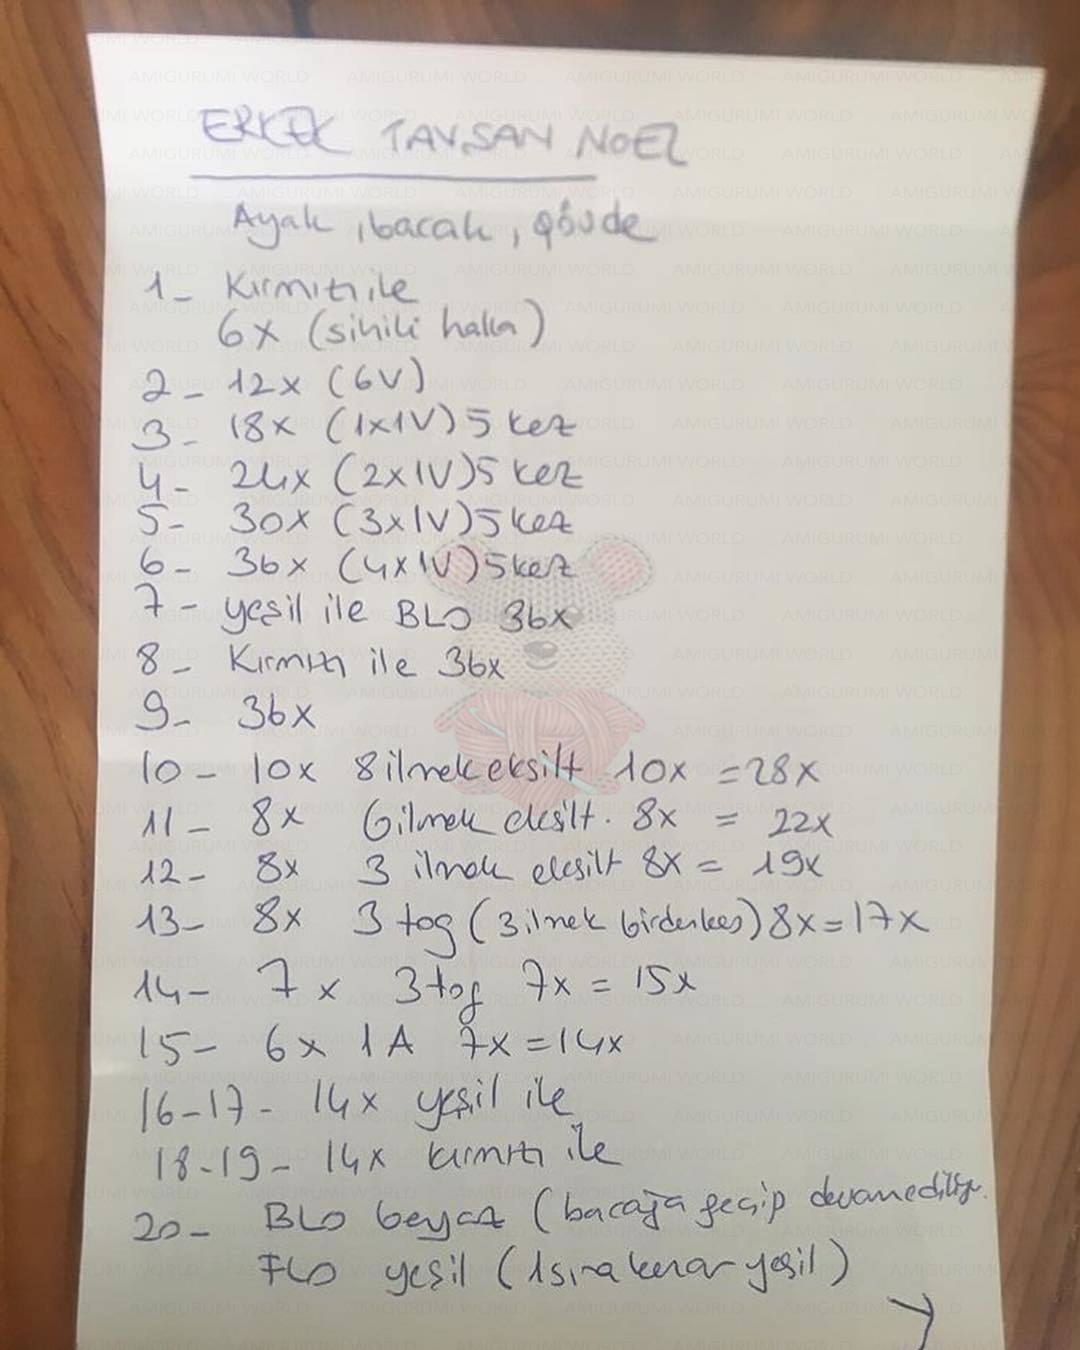 ERKEK TAVŞAN NOEL
Ayak, bacak, gövde
1- Kırmızı ile
6x (sihili halka)
2- 12x (6V)
3- 18x (1x1V) 5 kez
4- 24x (2x1V) 5 kez
5- 30x (3x1V) 5 kez
6- 36x (4x1V) 5 kez
7- yeşil ile BLO 36x
8- Kırmızı ile 36x
9- 36x
10- 10x 8 ilmek eksilt 10x =28x
11- 8x 6 ilmek eksilt. 8x = 22x
12- 8x 3 ilmek eksilt 8x = 19x
13- 8x 3 tog (3 ilmek birden kes) 8x=17x
14- 7x 3 tog 7x = 15x
15- 6x 1A 7x =14x
16-17- 14x yeşil ile
18-19- 14x kırmızı ile
20- BLO beyaz (bacağa geçip devam ediliyor.
FLO yeşil (1 sıra kenar yeşil)
AMIGURUMI WORLD